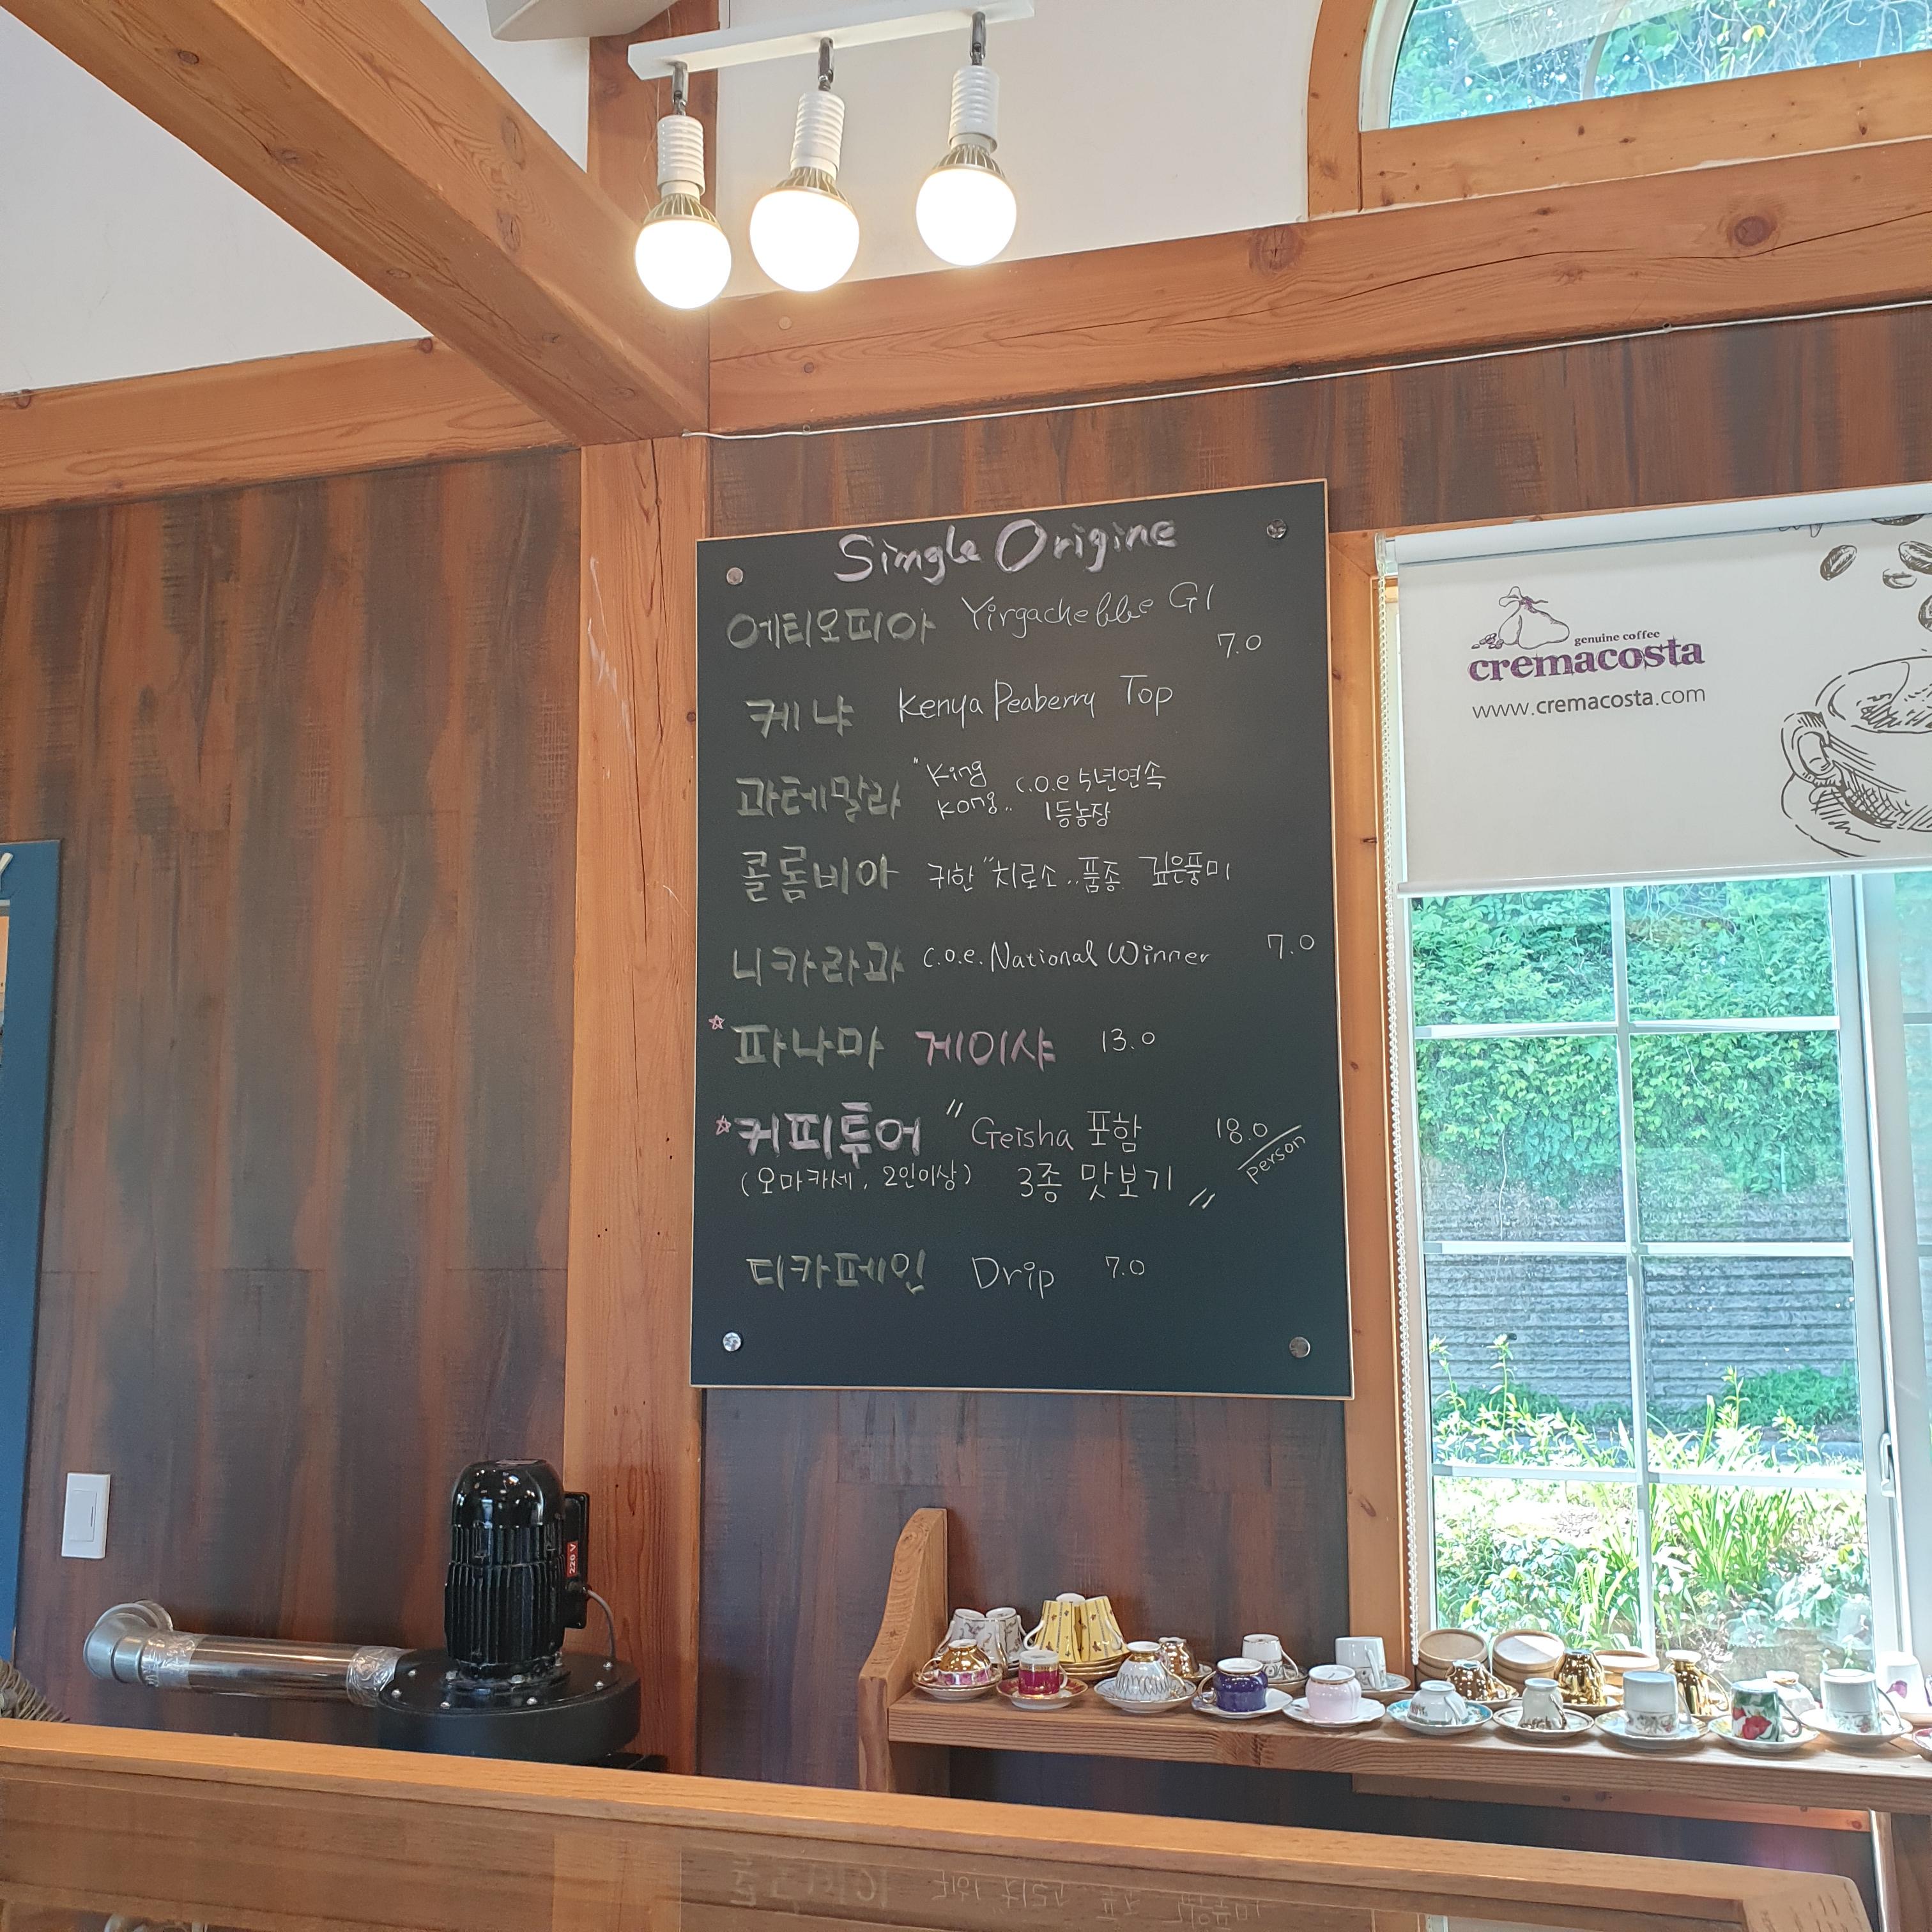 Single Origine
에티오피아 Yirgacheffe G1
7.0
케냐 Kenya Peaberry Top
과테말라 "King Kong" c.o.e 5년연속 1등농장
콜롬비아 귀한 "치로소" 품종 깊은풍미
니카라과 c.o.e. National Winner 7.0
☆ 파나마 게이샤 13.0
☆ 커피투어 "Geisha 포함 18.0/person
(오마카세, 2인이상) 3종 맛보기"
디카페인 Drip 7.0
genuine coffee
cremacosta
www.cremacosta.com
220 V